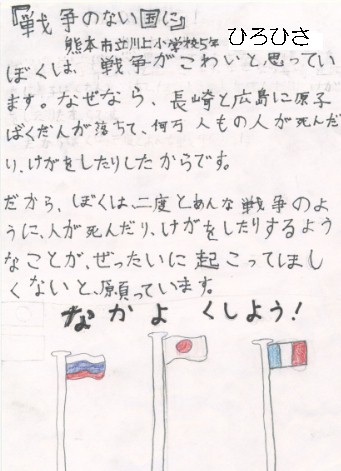 『戦争のない国に』
熊本市立川上小学校5年 ひろひさ
ぼくは、戦争がこわいと思ってい
ます。なぜなら、長崎と広島に原子
ばくだんが落ちて、何万人もの人が死んだ
り、けがをしたりしたからです。
だから、ぼくは、二度とあんな戦争のよ
うに、人が死んだり、けがをしたりするよう
なことが、ぜったいに起こってほし
くないと、願っています。
なかよくしよう!